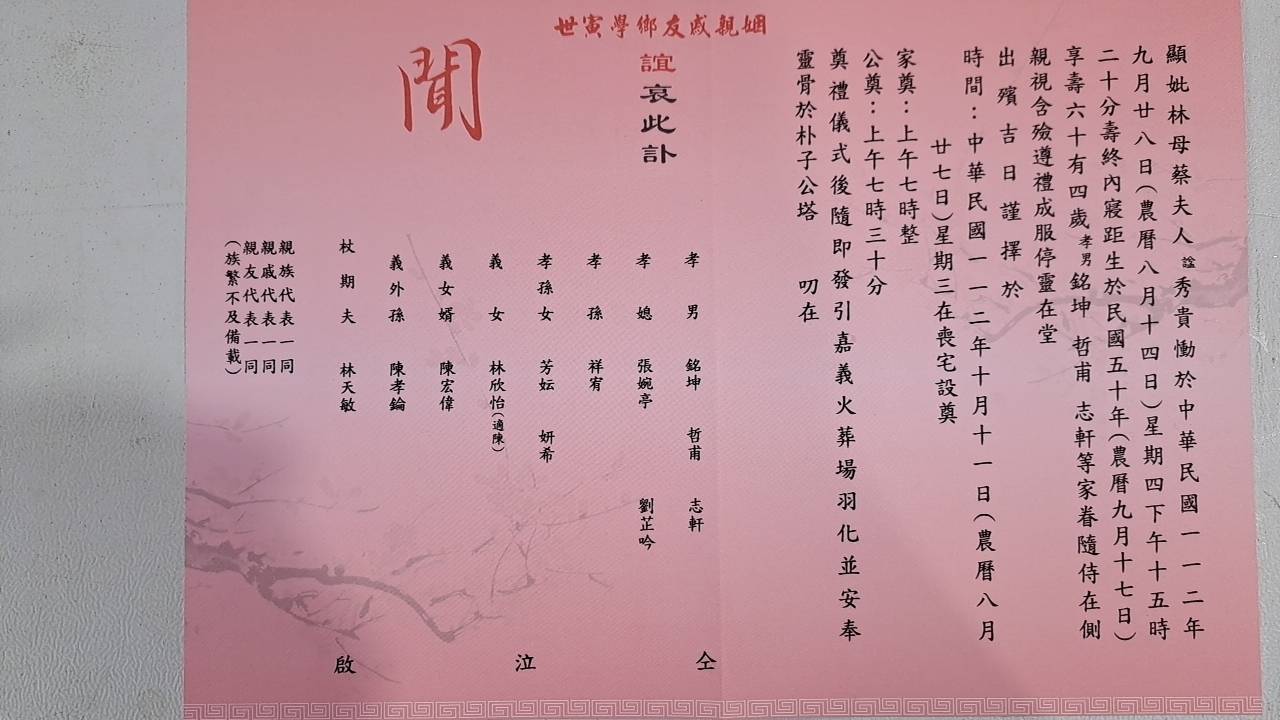 顯妣林母蔡夫人諡秀貴慟於中華民國一一二年
九月廿八日(農曆八月十四日)星期四下午十五時
二十分壽終內寢距生於民國五十年(農曆九月十七日)
享壽六十有四歲孝男銘坤 哲甫 志軒等家眷隨侍在側
親視含殮遵禮成服停靈在堂
出殯吉日謹擇於
時間:中華民國一一二年十月十一日(農曆八月
廿七日)星期三在喪宅設奠
家奠:上午七時整
公奠:上午七時三十分
奠禮儀式後隨即發引嘉義火葬場羽化並安奉
靈骨於朴子公塔 叨在
姻親戚友鄉學寅世
誼哀此訃
聞
孝男 銘坤 哲甫 志軒
孝媳 張婉亭 劉芷吟
孝孫 祥宥
孝孫女 芳妘 妍希
義女 林欣怡(適陳)
義女婿 陳宏偉
義外孫 陳孝錀
杖期夫 林天敏
親族代表一同
親戚代表一同
親友代表一同
(族繁不及備載)
仝 泣 啟